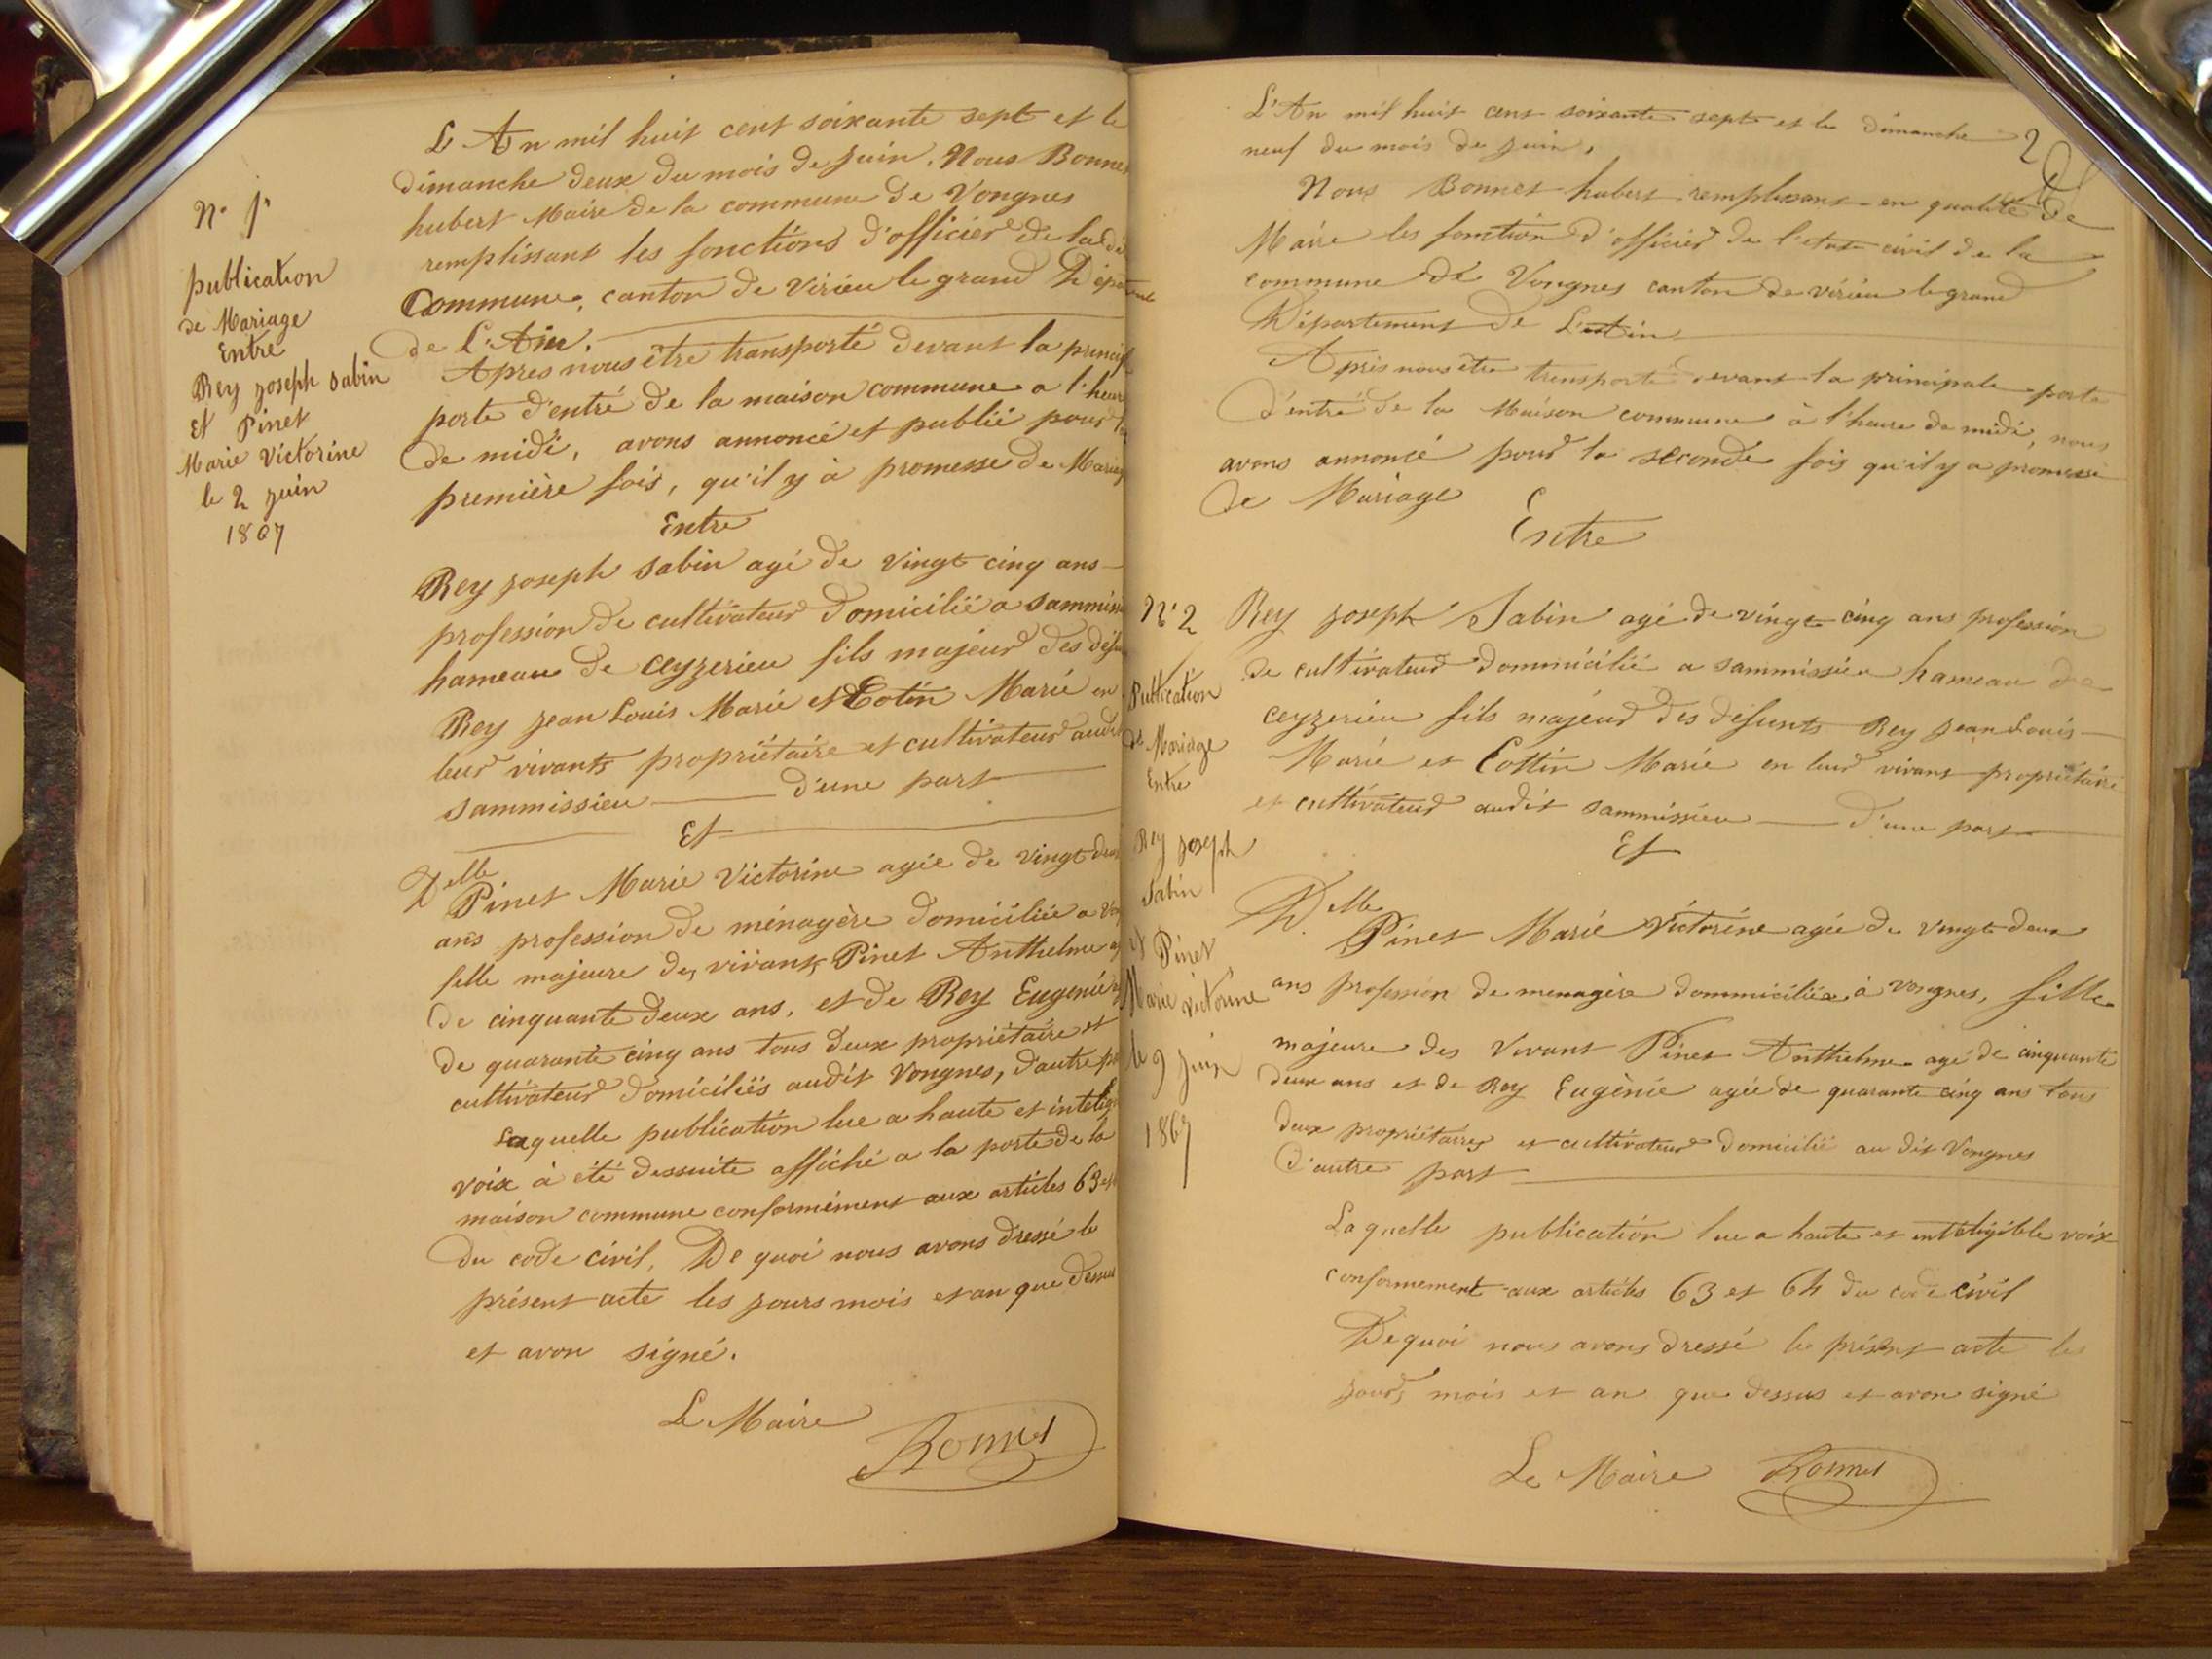 N° 1er
publication
de Mariage
Entre
Rey joseph Sabin
Et Pinet
Marie Victorine
le 2 juin
1867
L'An mil huit cent soixante sept et le
dimanche deux du mois de juin. Nous Bonnet
hubert Maire de la commune de Vongnes
remplissant les fonctions d'officier de la
Commune, canton de Virieu le grand
de L'Ain.
Apres nous être transporté devant la
porte d'entré de la maison commune a l'heur
de midi, avons annoncé et publié pour
première fois, qu'il y à promesse de
Entre
Rey joseph Sabin agé de vingt cinq ans
profession de cultivateur domicilié a
hameau de ceyzerieu fils majeur des
Rey jean Louis Marie et Cotin Marie en
leur vivants propriétaire et cultivateur
Sammissieu d'une part
Et
Delle
Pinet Marie Victorine agée de vingt
ans profession de ménagère domiciliée a
fille majeure des vivants Pinet Anthelme
de cinquante deux ans, et de Rey Eugenie
de quarante cinq ans tous deux propriétaire et
cultivateur domiciliés audit Vongnes, d'autre
Laquelle publication lue a haute et
voix à été dessuite affiché a la porte de la
maison commune conformément aux articles 63
du code civil, De quoi nous avons dressé le
présent acte les jours mois et an que dessus
et avon signé.
Le Maire
Bonnet
2
L'An mil huit cent soixante sept et le dimanche
neuf du mois de juin,
Nous Bonnet hubert remplisant en qualité de
Maire les fonction d'officier de l'etat civil de la
commune de Vongnes canton de virieu le grand
Département de L'Ain
Après nous être transporté devant la principale porte
d'entré de la Maison commune à l'heure de midi, nous
avons annoncé pour la seconde fois qu'il y a promesse
de Mariage
Entre
N° 2
Publication
de Mariage
Entre
Rey joseph
Sabin
et Pinet
Marie victorine
le 9 juin
1867
Rey joseph Sabin agé de vingt cinq ans profession
de cultivateur dommicilié a sammissieu hameau de
ceyzerieu fils majeur des defunts Rey jean Louis
Marie et Cottin Marie en leur vivant propriétaire
et cultivateur audit Sammissieu d'une part
Et
Delle
Pinet Marie Victorine agée de vingt deux
ans profession de menagère dommiciliée à vongnes, fille
majeure des Vivant Pinet Anthelme agé de cinquante
deux ans et de Rey Eugènie agée de quarante cinq ans tous
deux propriétaires et cultivateur domicilié au dit Vongnes
d'autre part
Laquelle publication lue a haute et inteligible voix
conformement aux articles 63 et 64 du code civil
De quoi nous avons dressé le présent acte les
jours, mois et an que dessus et avon signé
Le Maire Bonnet